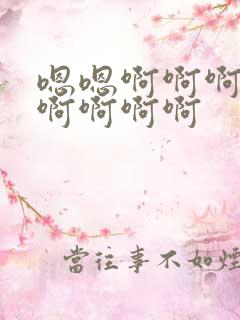 嗯嗯啊啊啊
啊啊啊啊
當往事不如煙